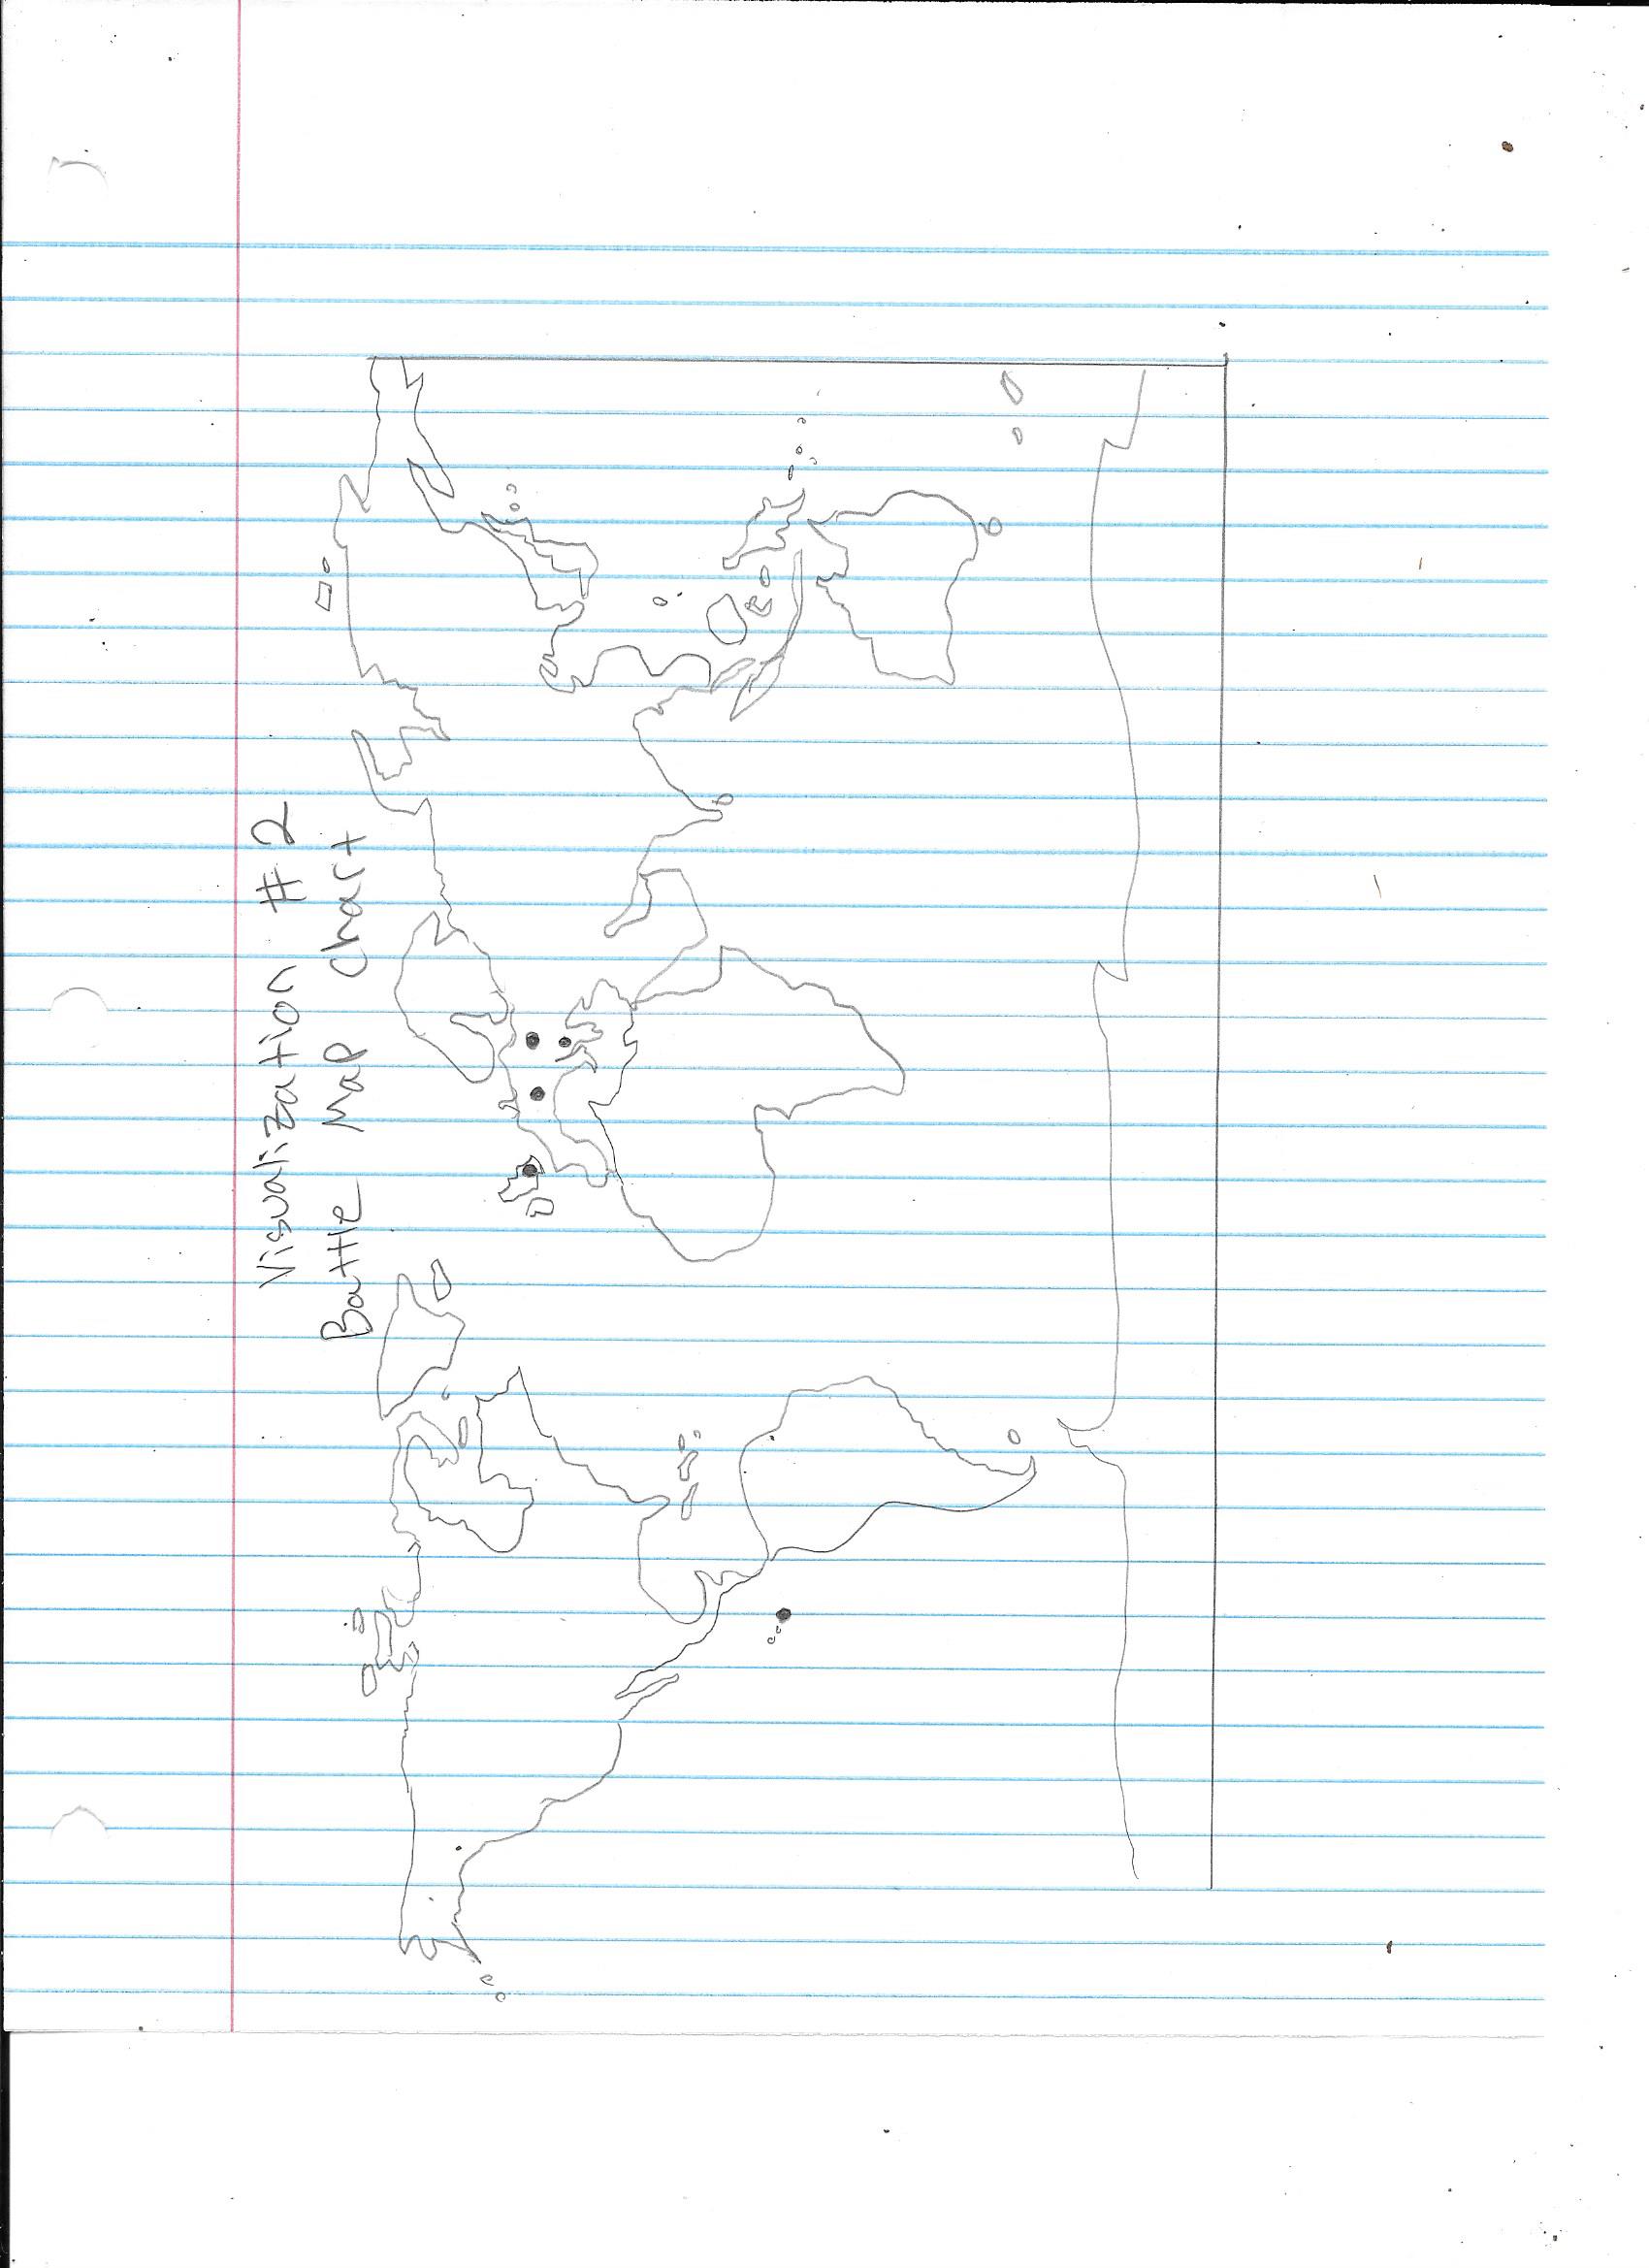 Visualization #2
Battle Map Chart